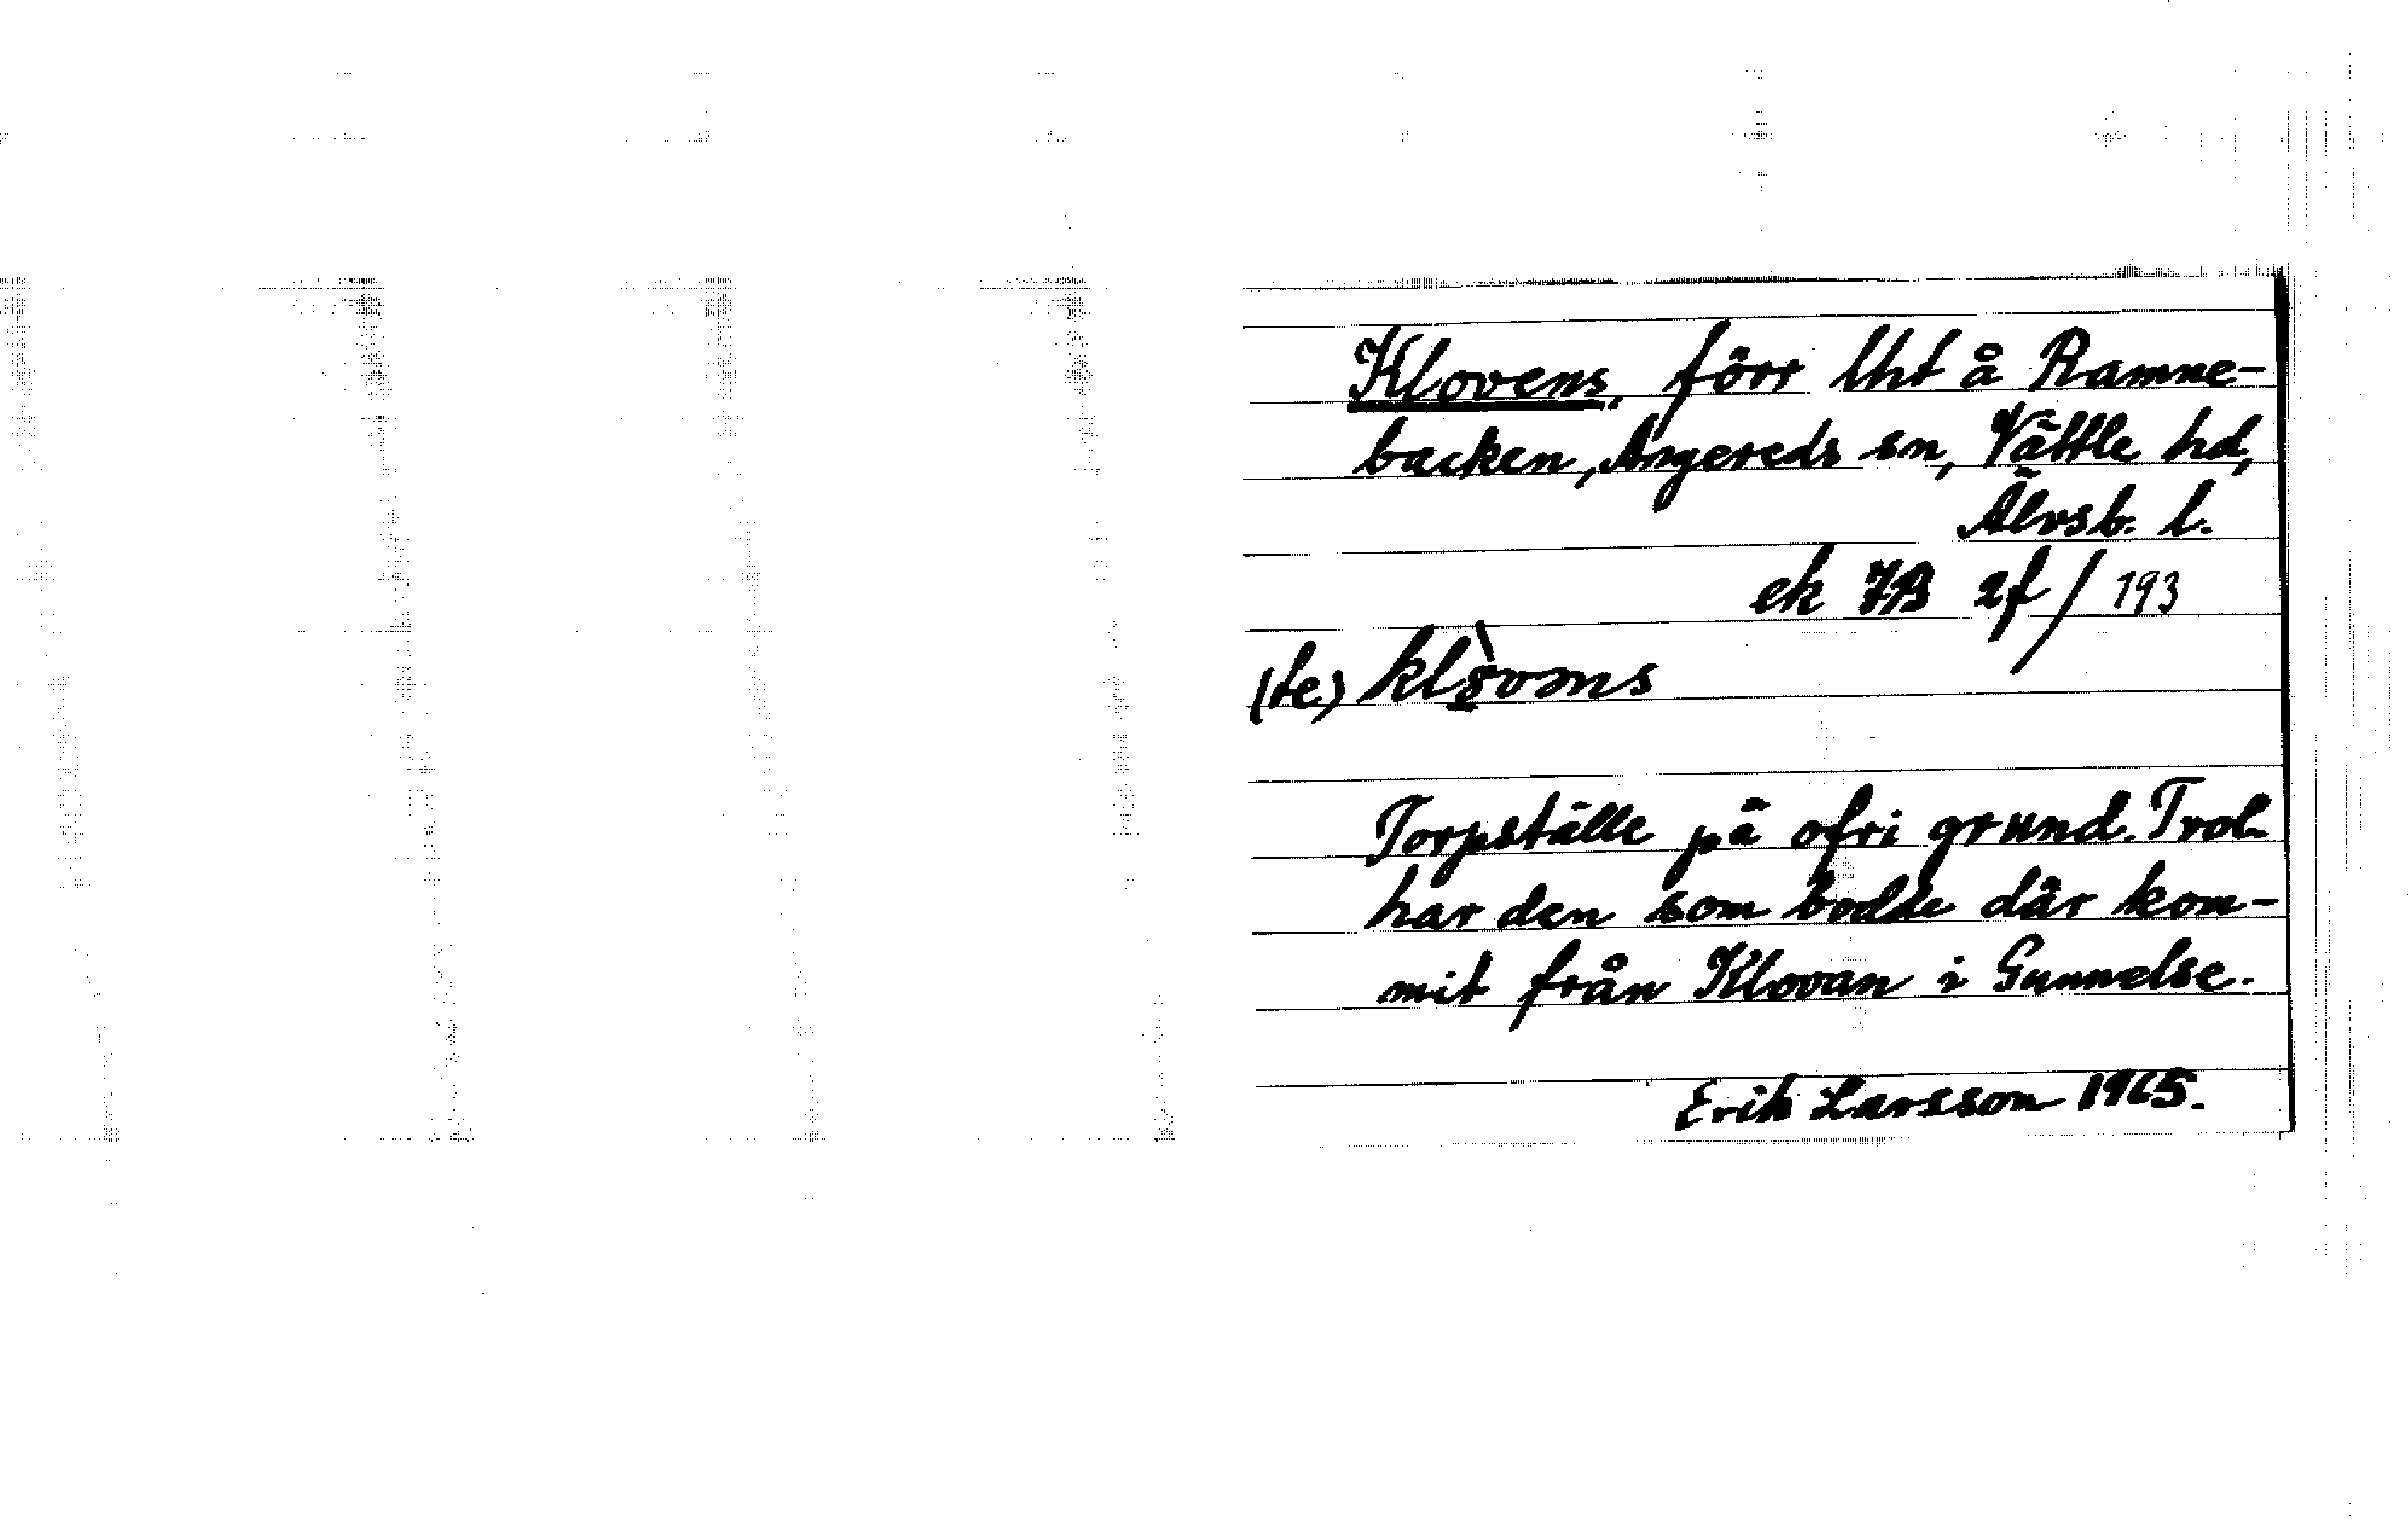 Klovens, förr lht å Ramne-
backen, Angereds sn, Vättle hd,
Älvsb. l.
ek 7B 2f / 193
(te)
Torpställe på ofri grund. Trol.
har den som bodde där kom-
mit från Klovan i Gunnelse.
Erik Larsson 1965.